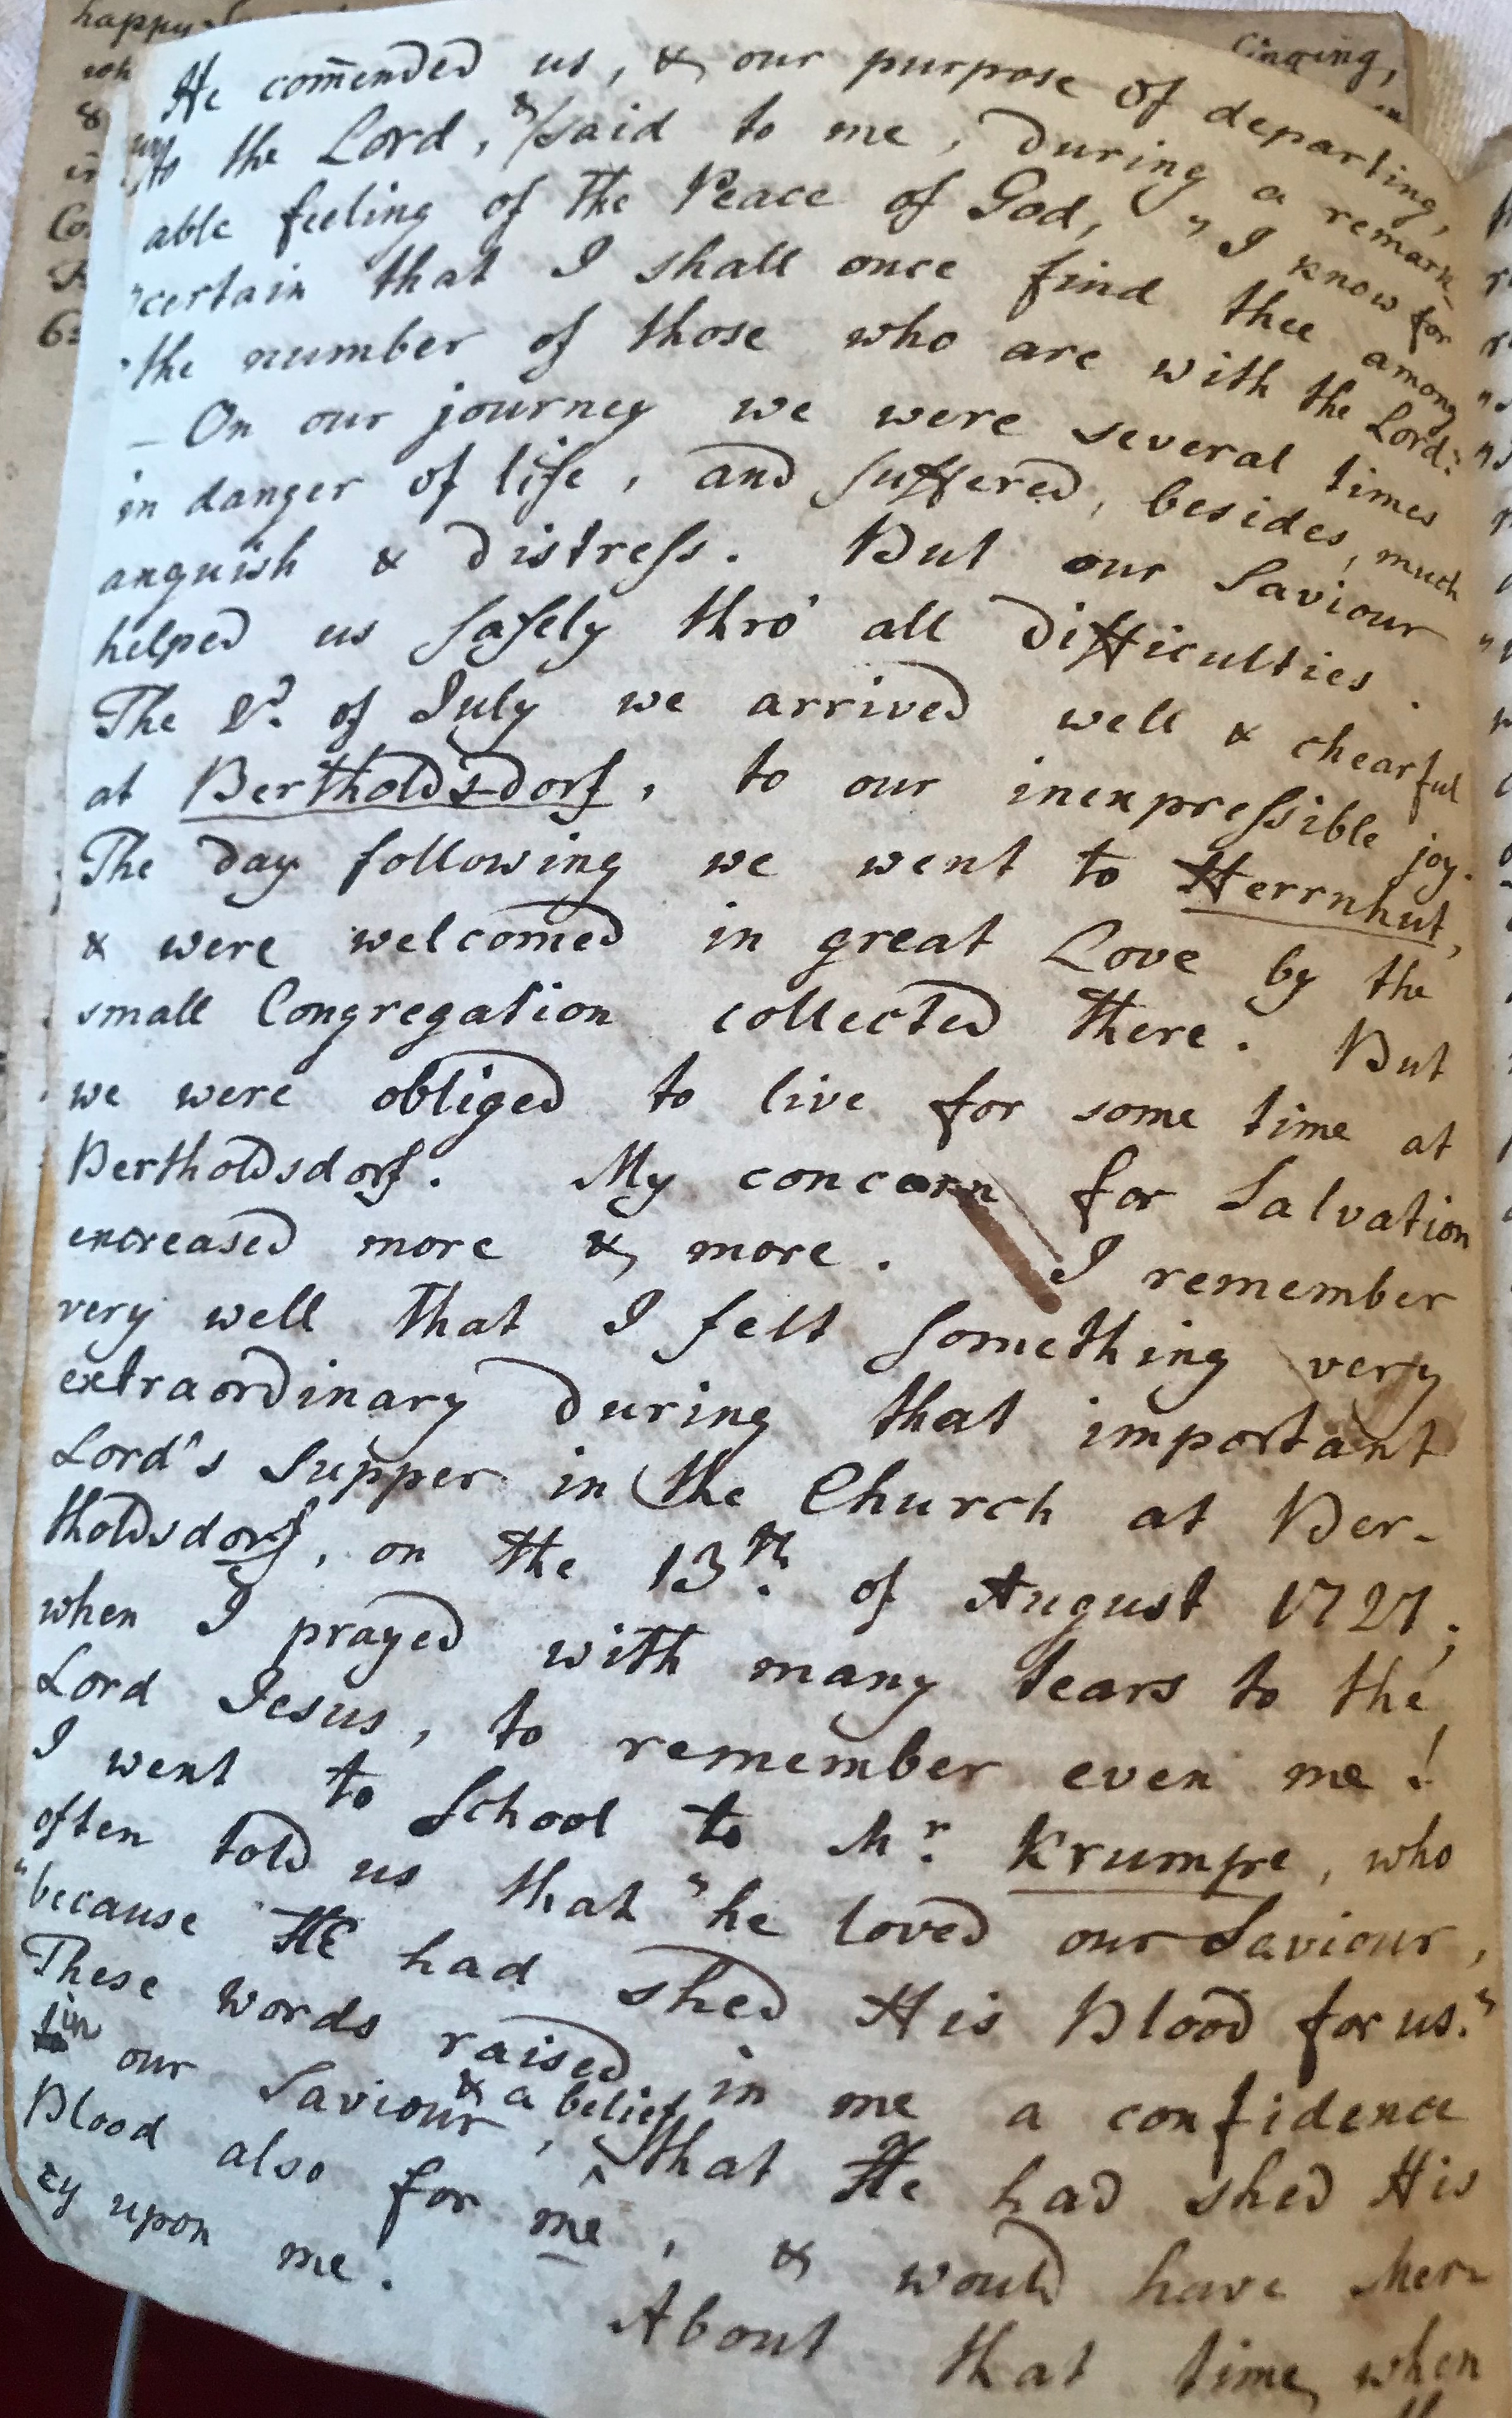 He com̄ended us, & our purpose of departing,
unto the Lord, & said to me, during a remark-
able feeling of the Peace of God, "I know for
"certain that I shall once find thee among
"the number of those who are with the Lord:
— On our journey we were several times
in danger of life, and suffered, besides, much
anguish & distress. But our Saviour
helped us safely thro' all difficulties.
The 2d. of July we arrived well & chearful
at Bertholdsdorf, to our inexpressible joy.
The day following we went to Herrnhut,
& were welcomed in great Love by the
small Congregation collected there. But
we were obliged to live for some time at
Bertholdsdorf. My concern for Salvation
encreased more & more. I remember
very well that I felt something very
extraordinary during that important
Lord's Supper in the Church at Ber-
tholdsdorf, on the 13th. of August 1727;
when I prayed with many tears to the
Lord Jesus, to remember even me!
I went to School to Mr. Krumpe, who
often told us that "he loved our Saviour,
"because HE had shed His Blood for us."
These words raised in me a confidence
in our Saviour, & a belief that He had shed His
Blood also for me, & would have Mer-
cy upon me.
About that time, when
happy
singing,